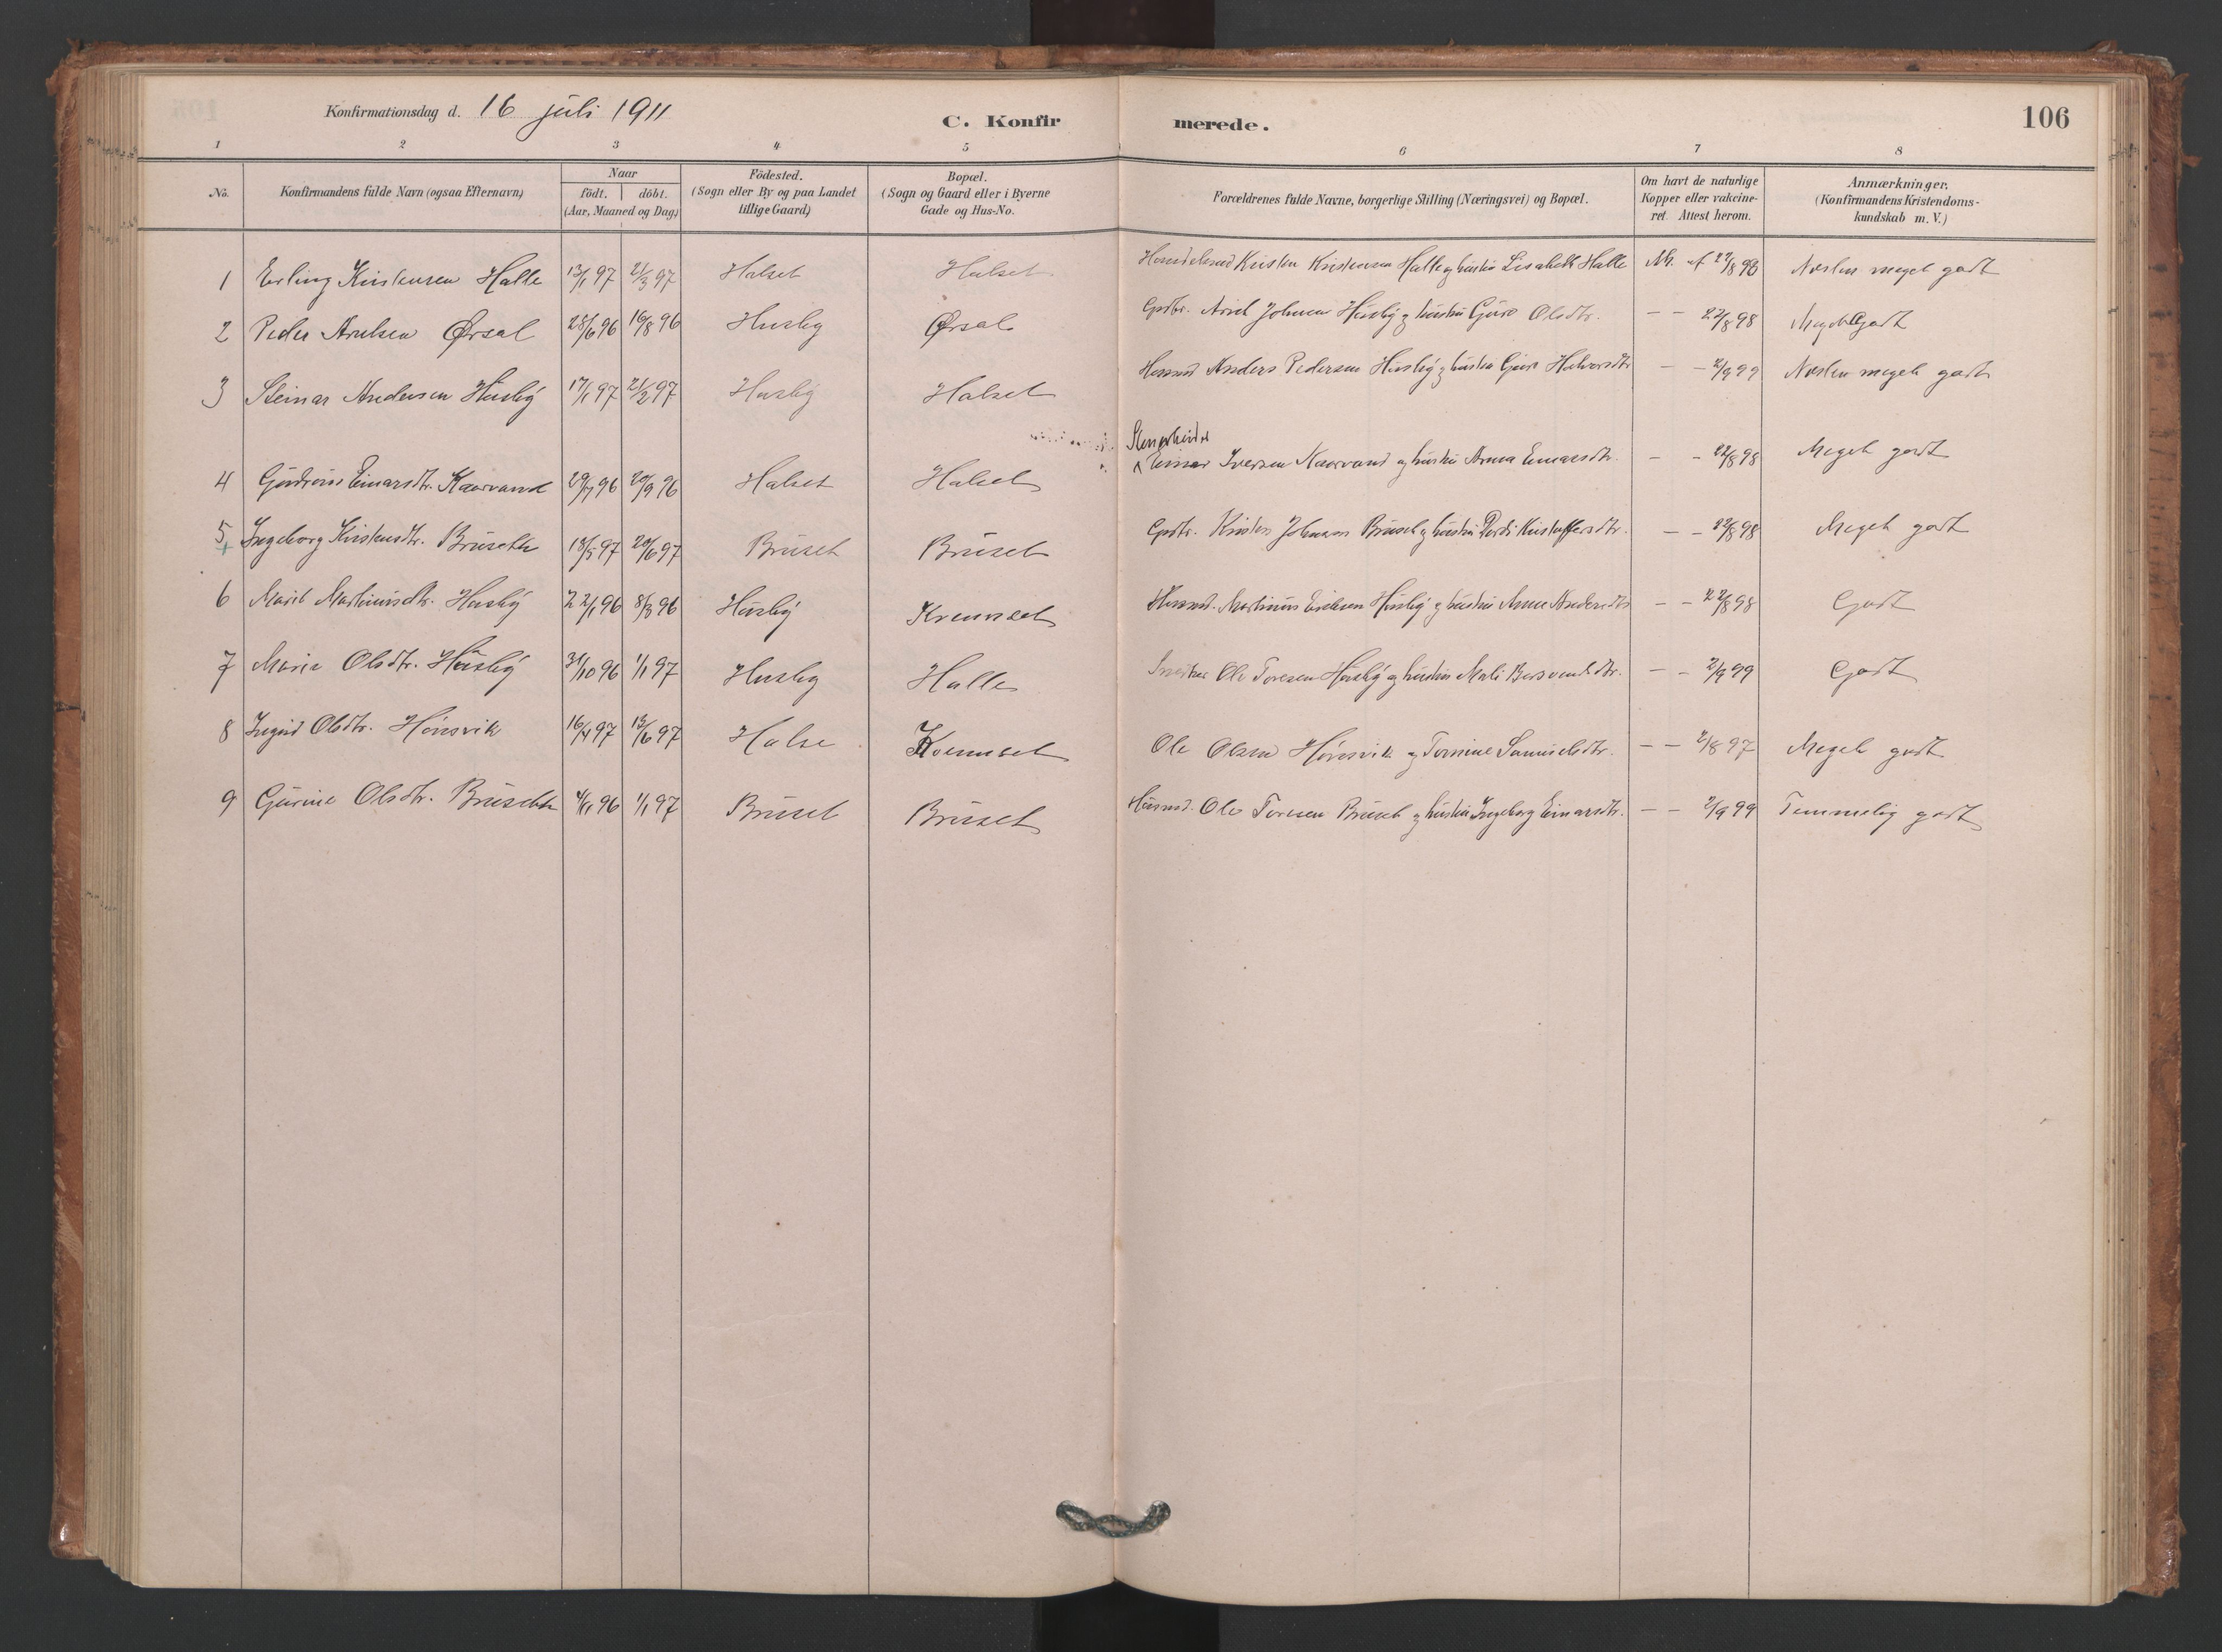 Konfirmationsdag d. 16 juli 1911
C. Konfir merede. 106
1 2 3 4 5 6 7 8
No. Konfirmandens fulde Navn (ogsaa Efternavn) Naar födt. döbt. (Aar, Maaned og Dag) Födested. (Sogn eller By og paa Landet tillige Gaard) Bopæl. (Sogn og Gaard eller i Byerne Gade og Hus-No. Forældrenes fulde Navne, borgerlige Stilling (Næringsvei) og Bopæl. Om havt de naturlige Kopper eller vakcineret. Attest herom. Anmærkninger. (Konfirmandens Kristendomskundskab m. V.)
1 Erling Kristensen Halle 13/1 97 21/3 97 Halset Halset Kristen Kristensen Halle og hustru Lisabeth Halle af 22/8 98 Næsten meget godt
2 Peder Arntsen Ørsal 28/6 96 16/8 96 Husby Ørsal Gbr. Arnt Johnsen Husby og hustru Guro Olsdtr. — — 22/8 98 Meget Godt
3 Steinar Andersen Husby 17/1 97 21/2 97 Husby Halset Husmd Anders Pedersen Husby og hustru Guri Halvorsdtr — — 2/9 99 Næsten meget godt
Stenarbeider
4 Einarsdtr. Naavand 29/7 96 20/9 96 Halset Halset Einar Iversen Naavand og hustru Anna Einarsdtr. — — 22/8 98 Meget godt
5 Ingeborg Kristensdtr. Brüseth 18/5 97 20/6 97 Brüset Brüset Kristen Johnsen Brüset og hustru Kristoffersdtr. — — 22/8 98 Meget godt
6 Marit Martinusdtr. Husby 22/1 96 8/3 96 Husby Kvennset Husmd. Martinus Eriksen Husby og hustru Anne Andersdtr — — 22/8 98 Godt
7 Marie Olsdtr. Husby 31/10 96 1/1 97 Husby Halle Ole Toresen Husby og hustru Mali — — 2/9 99 Godt
8 Ingrid Olsdtr. Hönsvik 16/4 97 13/6 97 Halse Kvennset Ole Olsen Hönsvik og Tomine Samuelsdtr. — — 2/8 97 Meget godt
9 Gurine Olsdtr. Brüseth 4/11 96 1/1 97 Brüset Brüset Husmd. Ole Toresen Brüset og hustru Ingeborg Einarsdtr. — — 2/9 99 Temmelig godt